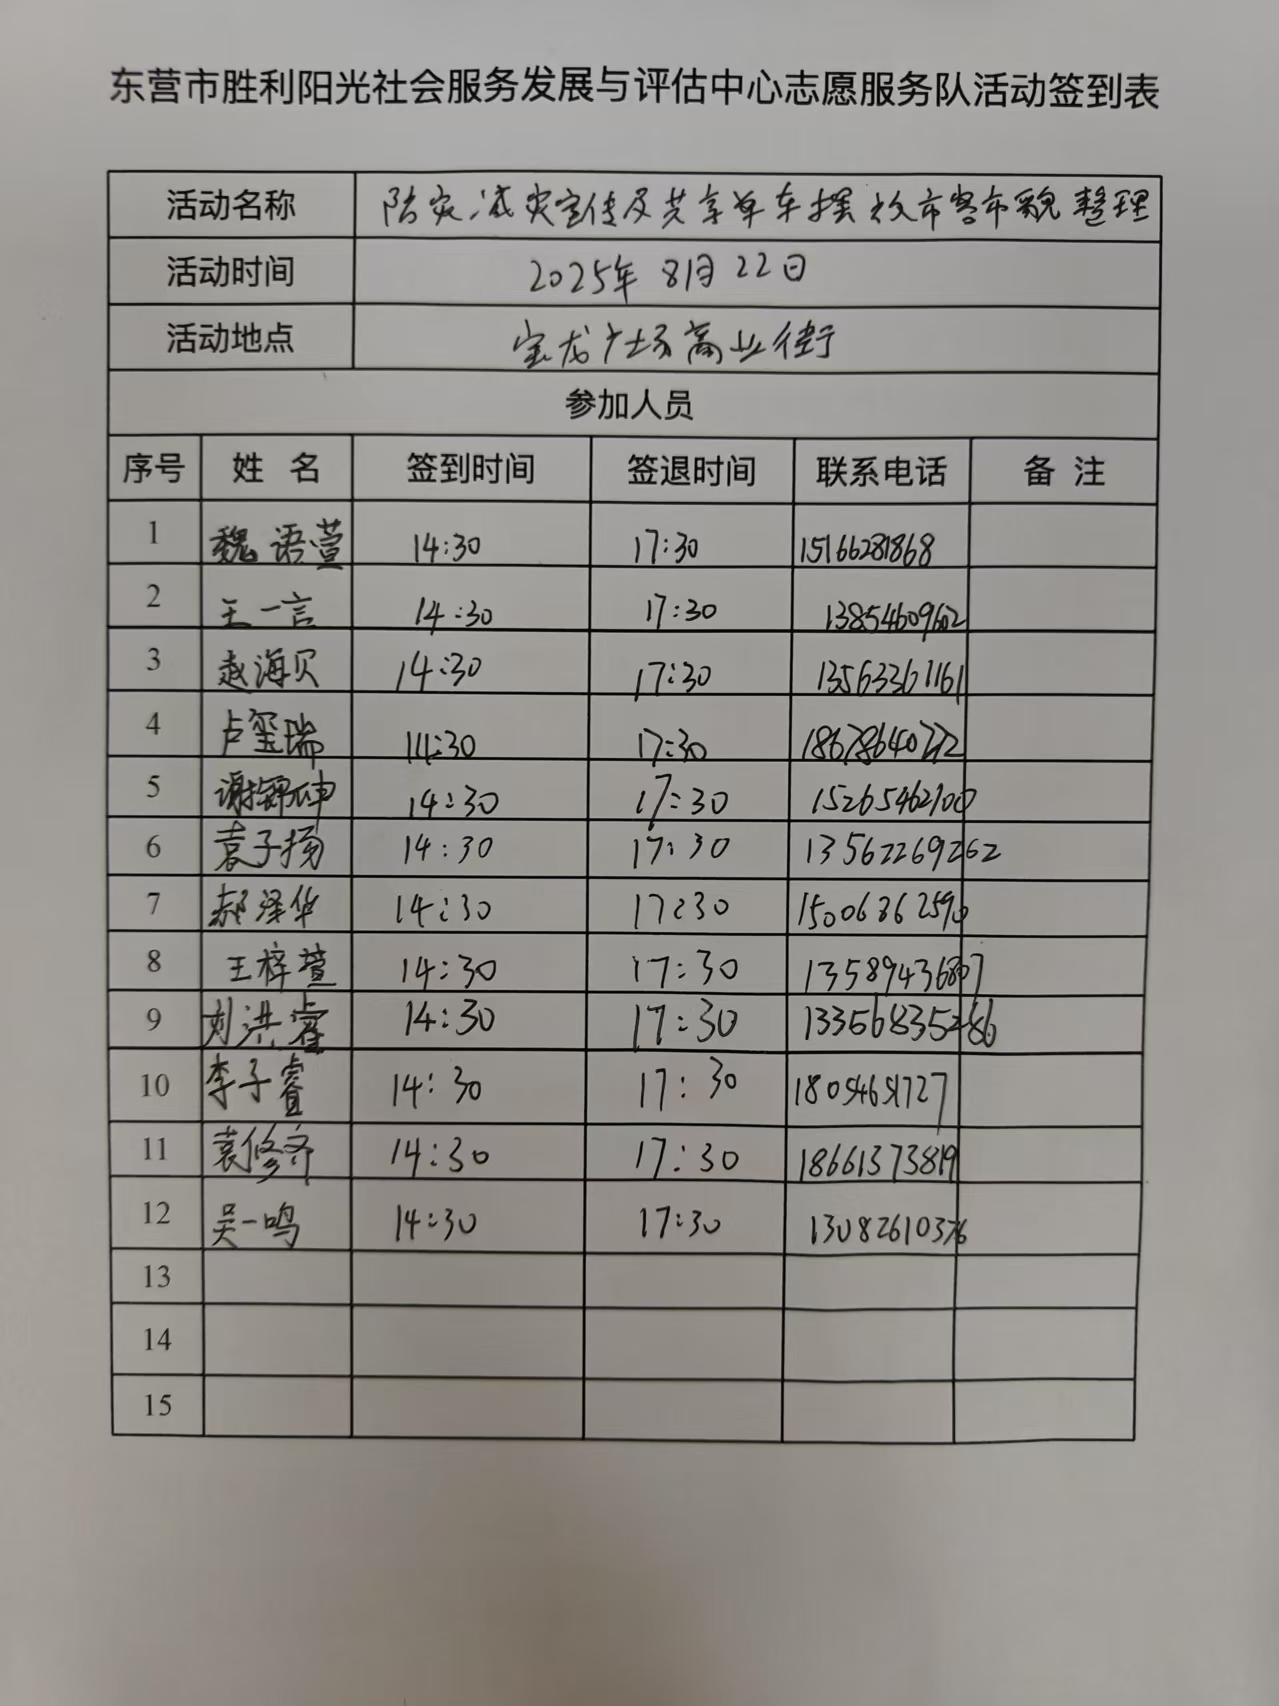 东营市胜利阳光社会服务发展与评估中心志愿服务队活动签到表
活动名称 防灾减灾宣传及共享单车摆放市容市貌整理
活动时间 2025年8月22日
活动地点 宝龙广场商业街
参加人员
序号 姓名 签到时间 签退时间 联系电话 备注
1 魏语萱 14:30 17:30 15166281868
2 王一言 14:30 17:30 13854609602
3 赵海贝 14:30 17:30 13563361161
4 卢玺瑞 14:30 17:30
5 14:30 17:30 15265462100
6 袁子扬 14:30 17:30 13562269262
7 郝泽华 14:30 17:30 15006862590
8 王梓萱 14:30 17:30 13589436807
9 刘洪睿 14:30 17:30 13356835286
10 李子睿 14:30 17:30
11 袁修齐 14:30 17:30 18661373819
12 吴一鸣 14:30 17:30 13082610376
13
14
15